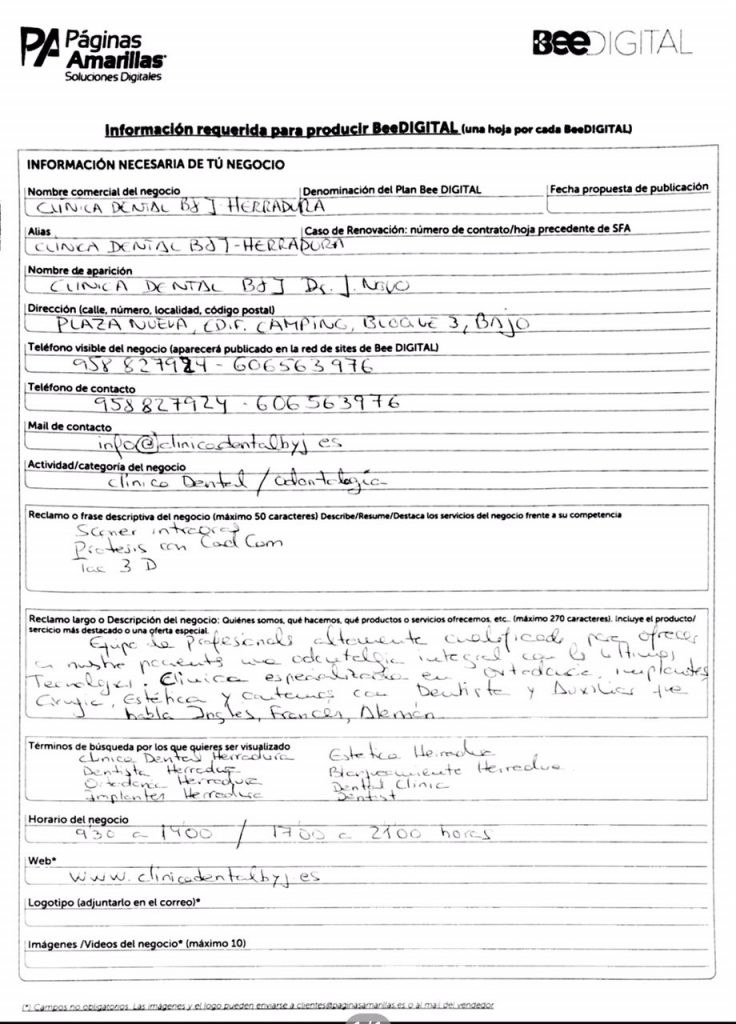 PA Páginas
Amarillas
Soluciones Digitales
BeeDIGITAL
Información requerida para producir BeeDIGITAL (una hoja por cada BeeDIGITAL)
INFORMACIÓN NECESARIA DE TÚ NEGOCIO
Nombre comercial del negocio
Denominación del Plan Bee DIGITAL
Fecha propuesta de publicación
CLINICA DENTAL BJJ-HERRADURA
Alias
Caso de Renovación: número de contrato/hoja precedente de SFA
CLINICA DENTAL BJJ-HERRADURA
Nombre de aparición
CLINICA DENTAL BJJ Dr. J. Novo
Dirección (calle, número, localidad, código postal)
PLAZA NUEVA, EDIF. CAMPING, BLOQUE 3, BAJO
Teléfono visible del negocio (aparecerá publicado en la red de sites de Bee DIGITAL)
958 827924 - 606563976
Teléfono de contacto
958827924 - 606563976
Mail de contacto
info@clinicadentalbyj.es
Actividad/categoría del negocio
clínica Dental / odontología
Reclamo o frase descriptiva del negocio (máximo 50 caracteres) Describe/Resume/Destaca los servicios del negocio frente a su competencia
Scaner intraoral
Protesis con Cad Cam
Tac 3 D
Reclamo largo o Descripción del negocio: Quiénes somos, qué hacemos, qué productos o servicios ofrecemos, etc.. (máximo 270 caracteres). Incluye el producto/
sercicio más destacado o una oferta especial.
Equipo de Profesionals altamente cualificado para ofrecer
a nustro pacients una odontologia integral con la últimas
Tecnologias. Clínica especializada en Ortodoncia, implantes
Cirugia, Estética y contamos con Dentista y Auxiliar que
habla Ingles, Frances, Alemán
Términos de búsqueda por los que quieres ser visualizado
Clinica Dental Herradura
Dentista Herradura
Ortodoncia Herradura
Implantes Herradura
Estetica Herradura
Blanqueamiento Herradura
Dental Clinic
Dentist
Horario del negocio
930 a 1400 / 1700 a 2100 horas
Web*
www.clinicadentalbyj.es
Logotipo (adjuntarlo en el correo)*
Imágenes /Videos del negocio* (máximo 10)
(*) Campos no obligatorios. Las imágenes y el logo pueden enviarse a clientes@paginasamarillas.es o al mail del vendedor
1/1